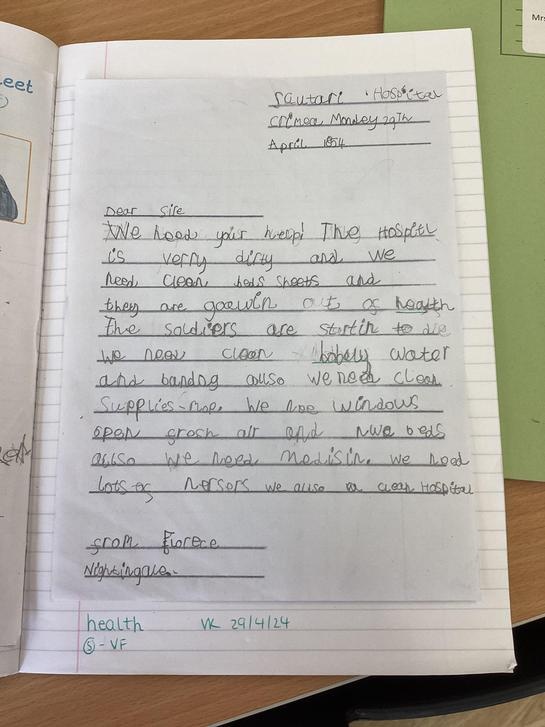 eet
Mrs
Sautari Hospital
Crimea Monday 29Th
April 1854
Dear Sire
We need your help! The Hospitl
is verry dirty and we
need clean beds sheets and
they are goowin out of health
The soldiers are startin to die
we need clean water
and bandng allso we need clean
supplies we nee windows
open gresh air and nwe beds
allso we need medisin. we need
lots of nersers we allso clean Hospital
from Florece
Nightingale.
health VK 29/4/24
S - VF